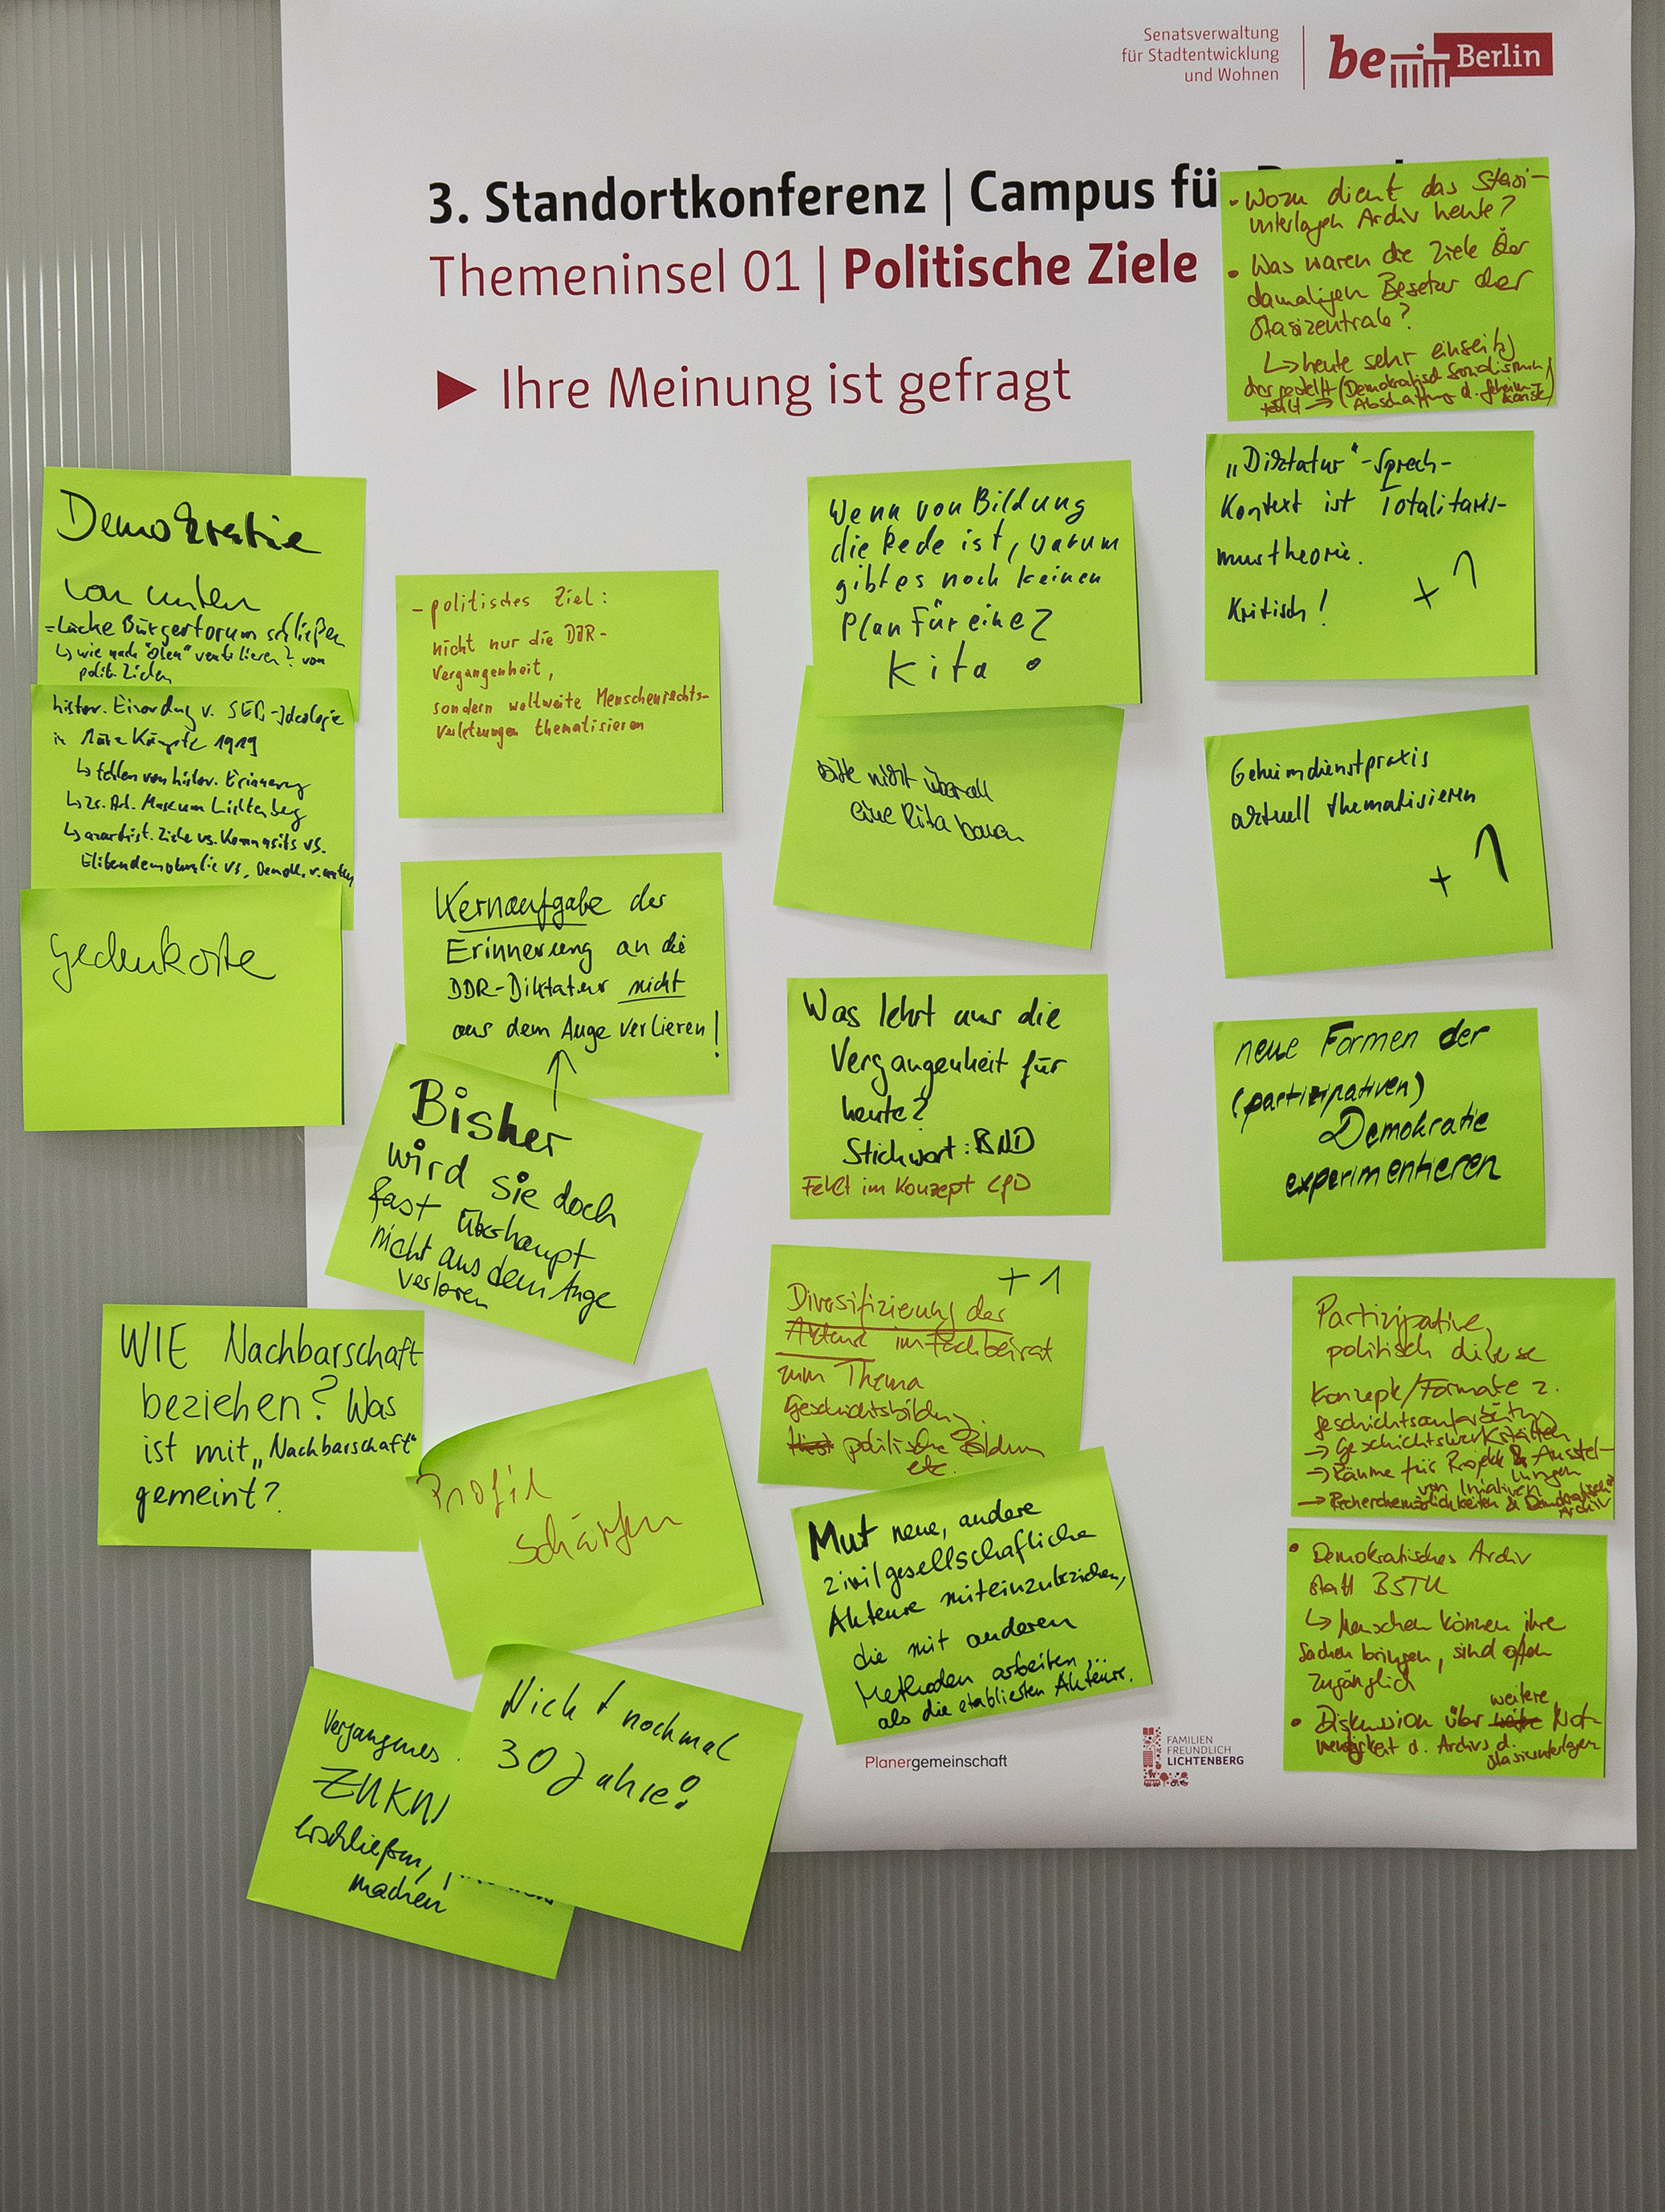 Senatsverwaltung
für Stadtentwicklung
und Wohnen
be Berlin
3. Standortkonferenz | Campus fü
Themeninsel 01 | Politische Ziele
▶ Ihre Meinung ist gefragt
Demokratie
von unten
=Lücke Bürgerforum schließen
↳ wie nach "oben" ventilieren? von
polit. Zielen
histor. Einordnung v. SED-Ideologie
in Märzkämpfe 1919
↳ fehlen von histor. Erinnerung
↳ zs. Arb. Museum Lichtenberg
↳ anarchist. Ziele vs. Kommunists vs.
Elitendemokratie vs. Demokr. v. unten
Gedenkorte
WIE Nachbarschaft
beziehen? Was
ist mit „Nachbarschaft"
gemeint?
Vergangenes
ZUKU
erschließen,
machen
- politisches Ziel:
nicht nur die DDR-
Vergangenheit,
sondern weltweite Menschenrechts-
verletzungen thematisieren
Kernaufgabe der
Erinnerung an die
DDR-Diktatur nicht
aus dem Auge verlieren!
Bisher
wird sie doch
fast überhaupt
nicht aus dem Auge
verloren
Profil
schärfen
Nicht nochmal
30 Jahre!
Wenn von Bildung
die Rede ist, warum
gibt es noch keinen
Plan für eine
Kita?
Bitte nicht überall
eine Kita bauen
Was lehrt uns die
Vergangenheit für
heute?
Stichwort: BND
Fehlt im Konzept CfD
+1
Diversifizierung der
Akteure im Fachbeirat
zum Thema
Geschichtsbildung.
politische Bildung
etc.
Mut neue, andere
zivilgesellschaftliche
Akteure miteinzubeziehen,
die mit anderen
Methoden arbeiten,..
als die etablierten Akteure.
• Wozu dient das Stasi-
unterlagen Archiv heute?
• Was waren die Ziele der
damaligen Besetzer der
Stasizentrale?
↳ heute sehr einseitig
dargestellt (Demokratisch Sozialismus/
fehlt → Abschaffung d. Geheim-
„Diktatur"-Sprech-
Kontext ist Totalitaris-
mustheorie.
Kritisch! +1
Geheimdienstpraxis
aktuell thematisieren
+1
neue Formen der
(partizipativen)
Demokratie
experimentieren
Partizipative,
politisch diverse
Konzepte/Formate z.
Geschichtsaufarbeitung
→ Geschichtswerkstätten
→ Räume für Projekte & Ausstel-
lungen
von Iniativen
→ Recherchemöglichkeiten & Demokratisches
Archiv
• Demokratisches Archiv
statt BSTU
↳ Menschen können ihre
Sachen bringen, sind offen
zugänglich
• Diskussion über weitere Not-
wendigkeit d. Archivs d.
Stasiunterlagen
Planergemeinschaft
FAMILIEN
FREUNDLICH
LICHTENBERG